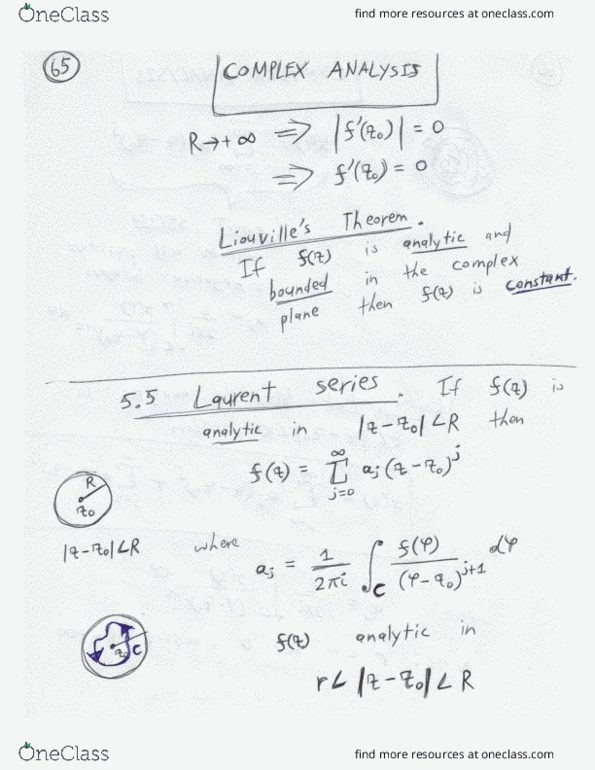 OneClass
find more resources at oneclass.com
65
COMPLEX ANALYSIS
R→+∞ ⟹ |f'(z₀)| = 0
⟹ f'(z₀) = 0
Liouville's Theorem.
If f(z) is analytic and
bounded in the complex
plane then f(z) is constant.
5.5 Laurent series. If f(z) is
analytic in |z-z₀|<R then
f(z) = ∑_{j=0}^{∞} aⱼ(z-z₀)^j
R
z₀
|z-z₀|<R where
aⱼ = 1/(2πi) ∫_C f(φ)/(φ-z₀)^{j+1} dφ
z₀ C
f(z) analytic in
r<|z-z₀|<R
OneClass
find more resources at oneclass.com